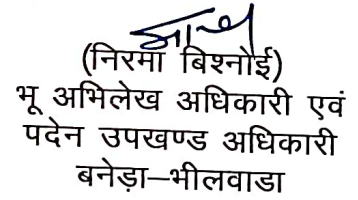 (निरमा बिश्नोई)
भू अभिलेख अधिकारी एवं
पदेन उपखण्ड अधिकारी
बनेड़ा–भीलवाडा